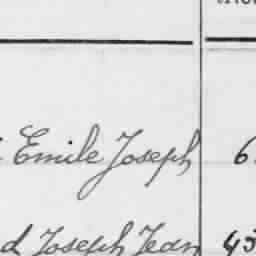 Emile Joseph 6
d Joseph Jean 45